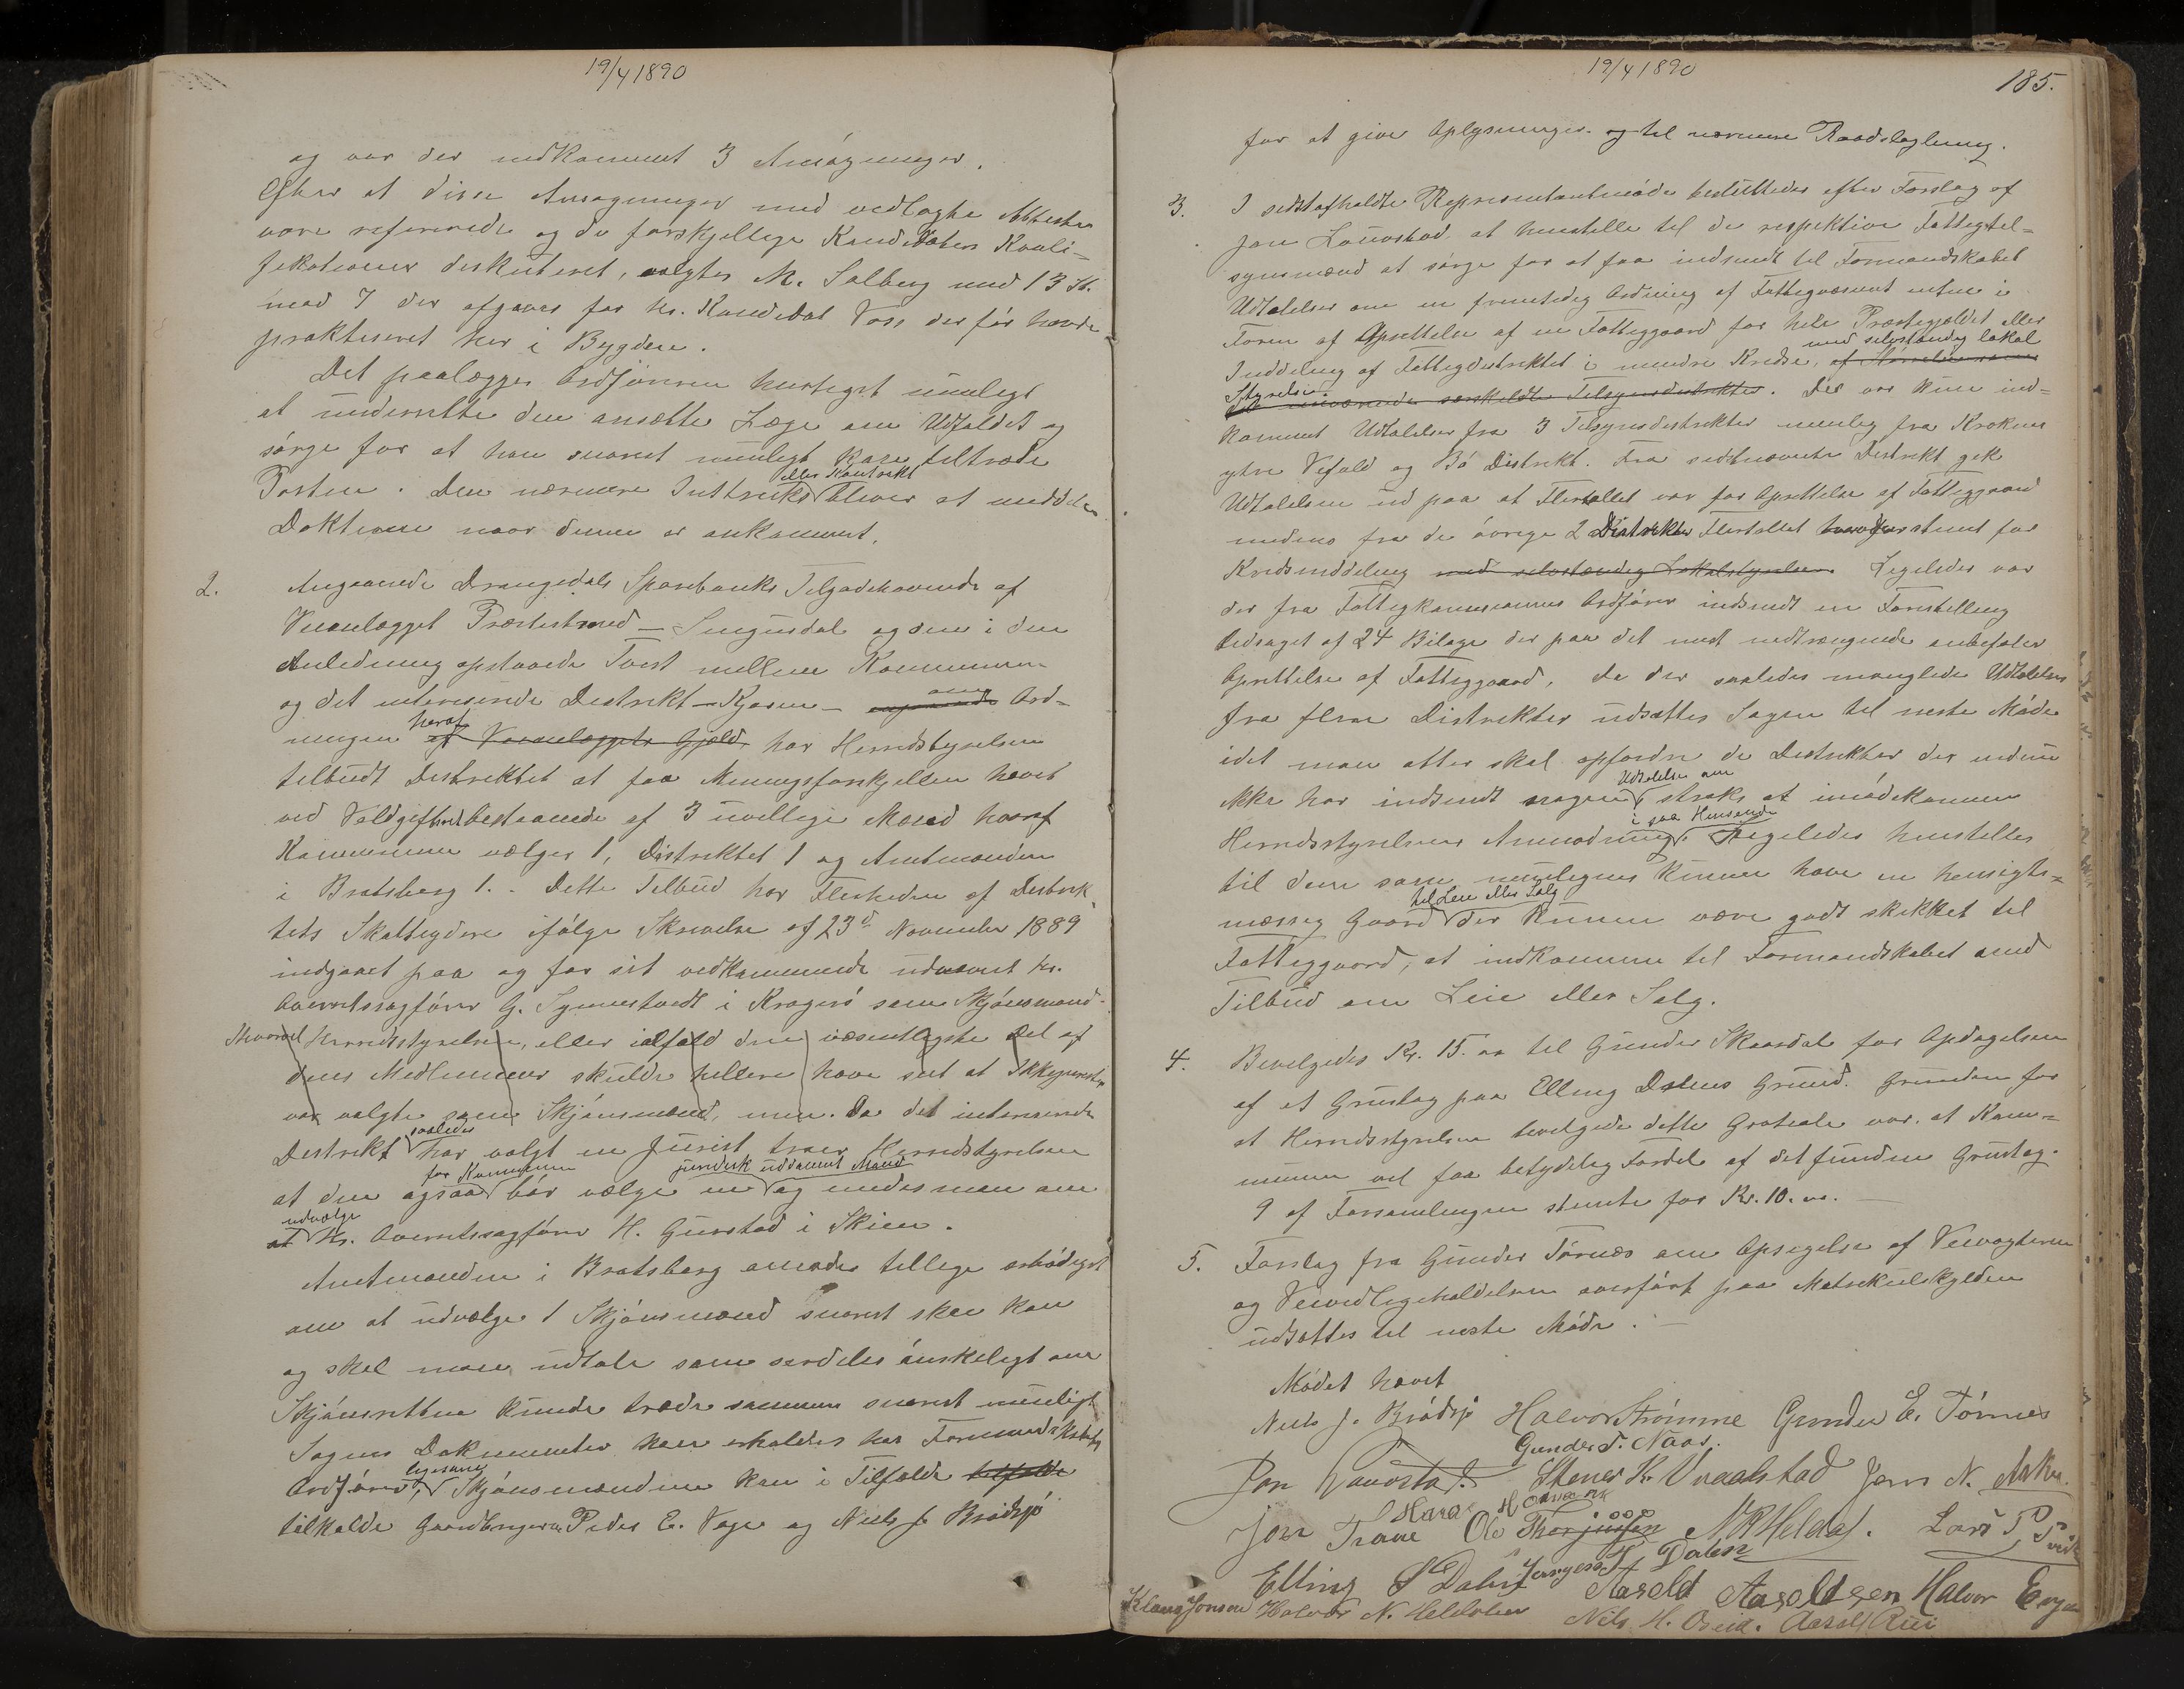 19/4 1890
og var der indkommet 3 Ansøgninger.
Efter at disse Ansøgninger med vedlagte Attester
vare refererede og de forskjellige Kandidaters Kvali-
fikationer diskuteret, valgtes M. Salberg med 13 St.
mod 7 der afgaves for Hr. Kandidat Voss der før havde
praktiseret her i Bygden.
Det paalægges Ordføreren hurtigst muligt
at underrette den ansatte Læge om Udfaldet og
sørge for at han snarest muligt kan tiltræde
eller Kontrakt
Posten. Den nærmere Instruks bliver at meddele
Doktoren naar denne er ankommet.
2. Angaaende Drangedals Sparebanks Tilgodehavende af
Veianlægget Præstestranda - Seugusdal og den i den
Anledning opstaaede Tvist mellem Kommunen
og det interesserede Distrikt - Kjosen - angaaende om Ord-
heraf
ningen af Veianlæggets Gjeld, har Herredsstyrelsen
tilbudt Distriktet at faa Meningsforskjellen hævet
ved Voldgiftsret bestaaende af 3 uvillige Mænd hvoraf
Kommunen vælger 1, Distriktet 1 og Amtmanden
i Bratsberg 1. - Dette Tilbud har Flerheden af Distrik-
tets Skatteydere ifølge Skrivelse af 23de November 1889
indgaaet paa og for sit vedkommende udnævnt Hr.
Overretssagfører G. Synnestvedt i Kragerø som Skjønsmand.
Hvorvel Herredsstyrelsen, eller ialfald den væsentligste Del af
dens Medlemmer skulde hellere have seet at Ikkejurister
var valgte som Skjønsmænd, men. Da det interesserede
saaledes
Distrikt har valgt en Jurist troer Herredsstyrelsen
for Kommunen juridisk uddannet Mand
at den ogsaa bør vælge en og enedes man om
udvælge
at Hr. Overretssagfører H. Gurstad i Skien.
Amtmanden i Bratsberg anmodes tillige ærbødigst
om at udvælge 1 Skjønsmand snarest skee kan
og skal man udtale som særdeles ønskeligt om
Skjønsretten kunde træde sammen snarest muligt
Sagens Dokumenter kan erholdes hos Formandskabets
ligesaa
Ordfører, Skjønsmændene kan i Tilfælde tilfælde
tilkalde Gaardbrugerne Peder E. Vøje og Niels J. Brødsjø
19/4 1890
185.
for at give Oplysninger og til nærmere Raadslagning.
3. I sidstafholdte Repræsentantmøde besluttedes efter Forslag af
Jon Lauvstad at henstille til de respektive Fattigtil-
synsmænd at sørge for at faa indsendt til Formandskabet
Udtalelser om en fremtidig Ordning af Fattigvæsenet enten i
Form af Oprettelse af en Fattiggaard for hele Præstegjældet eller
med selvstændig lokal
Inddeling af Fattigdistriktet i mindre Kredse,
Styrelse.
de nuværende særskildte Tilsynsdistrikter. Der var kun ind-
kommet Udtalelser fra 3 Tilsynsdistrikter nemlig fra Kroken
ytre Vefald og Bø Distrikt. Fra sidstnævnte Distrikt gik
Udtalelsen ud paa at Flertallet var for Oprettelse af Fattiggaard
medens fra de øvrige 2 Distrikter Flertallet havde stemt for
Kredsinddeling med selvstændig Lokalstyrelse. Ligeledes var
der fra Fattigkommissionens Ordfører indsendt en Forestilling
ledsaget af 24 Bilage der paa det mest indtrængende anbefaler
Oprettelse af Fattiggaard. Da der saaledes manglede Udtalelser
fra flere Distrikter udsættes Sagen til neste Møde
idet man atter skal opfordre de Distrikter der endnu
Udtalelse om
ikke har indsendt sagen straks at imødekomme
i saa Henseende
Herredsstyrelsens Anmodning. Ligeledes henstilles
til dem som muligens kunne have en hensigts-
til Leie eller Salg
mæssig Gaard der kunne være godt skikket til
Fattiggaard, at indkomme til Formandskabet med
Tilbud om Leie eller Salg.
4. Bevilgedes Kr. 15.00 til Gunder Skaardal for Opdagelsen
af et Grustag paa Elling Dalens Grund. Grunden for
at Herredsstyrelsen bevilgede dette Gratiale var, at Kom-
munen vil faa betydelig Fordel af det fundne Grustag.
9 af Forsamlingen stemte for Kr. 10.00.
5. Forslag fra Gunder Tørnes om Opsigelse af Veivogterne
og Veivedligeholdelsen overført paa Matrikulskylden
udsættes til neste Møde.
Mødet hævet
Niels J. Brødsjø Halvor Strømme Gunder E. Tørnes
Gunder T. Naas.
Jon Lauvstad. Stener K. Vraalstad Jens N. Asker.
Jon Traae Ole Thorjussen N R Heldal. Lars P.
Elling S Dalen Jørgen T Dalen Aasold Aasoldsen Halvor
Klaus Jonsen Halvor N. Heldalen Nils H. Aasold